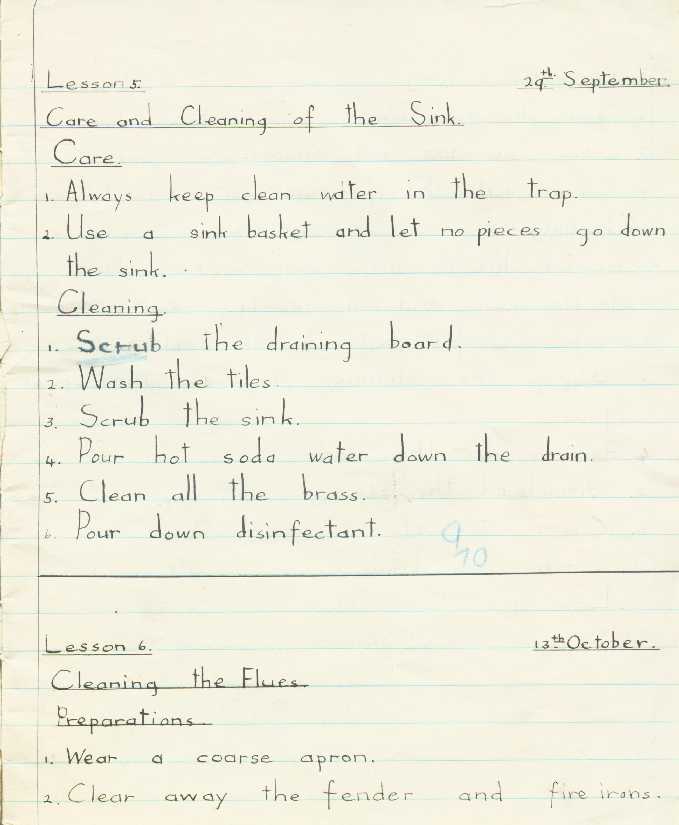 Lesson 5.
29th. September.
Care and Cleaning of the Sink.
Care.
1. Always keep clean water in the trap.
2. Use a sink basket and let no pieces go down
the sink.
Cleaning.
1. Scrub the draining board.
2. Wash the tiles.
3. Scrub the sink.
4. Pour hot soda water down the drain.
5. Clean all the brass.
6. Pour down disinfectant.
9/10
Lesson 6.
13th October.
Cleaning the Flues
Preparations
1. Wear a coarse apron.
2. Clear away the fender and fire irons.